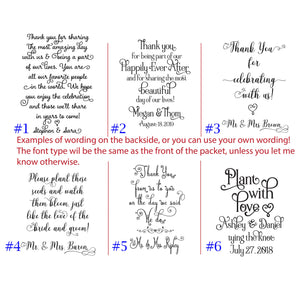 Thank you for sharing
the most amazing day
with us & being a part
of our lives. You are
all our favorite people
in the world. We hope
you enjoy the celebration
and those we'll share
in years to come!
Stephen & Sara
#1
Thank you
for being part of our
Happily Ever After
and for sharing the most
beautiful
day of our lives!
Megan & Thom
August 18, 2019
#2
Thank You
for
celebrating
with us!
Mr. & Mrs. Brown
#3
Examples of wording on the backside, or you can use your own wording!
The font type will be the same as the front of the packet, unless you let me
know otherwise.
Please plant these
seeds and watch
them bloom, just
like the love of the
bride and groom!
Mr. & Mrs. Bacon
#4
Thank You
from us to you
on the day we said
We do
#5
Plant
with
love
Ashley & Daniel
tying the knot
July 27, 2018
#6